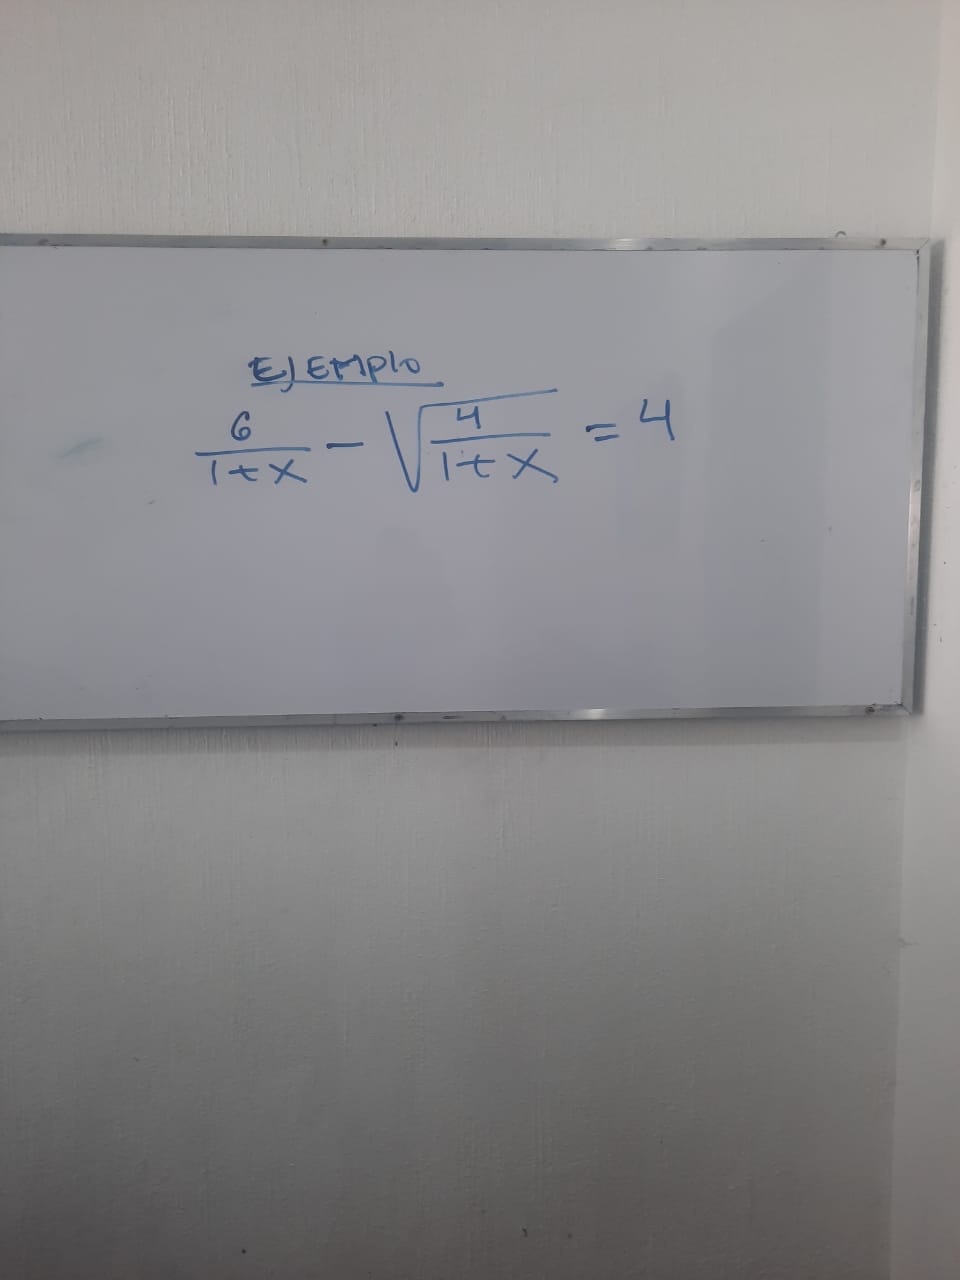 EJEMPLO
6/(1+x) - √(4/(1+x)) = 4